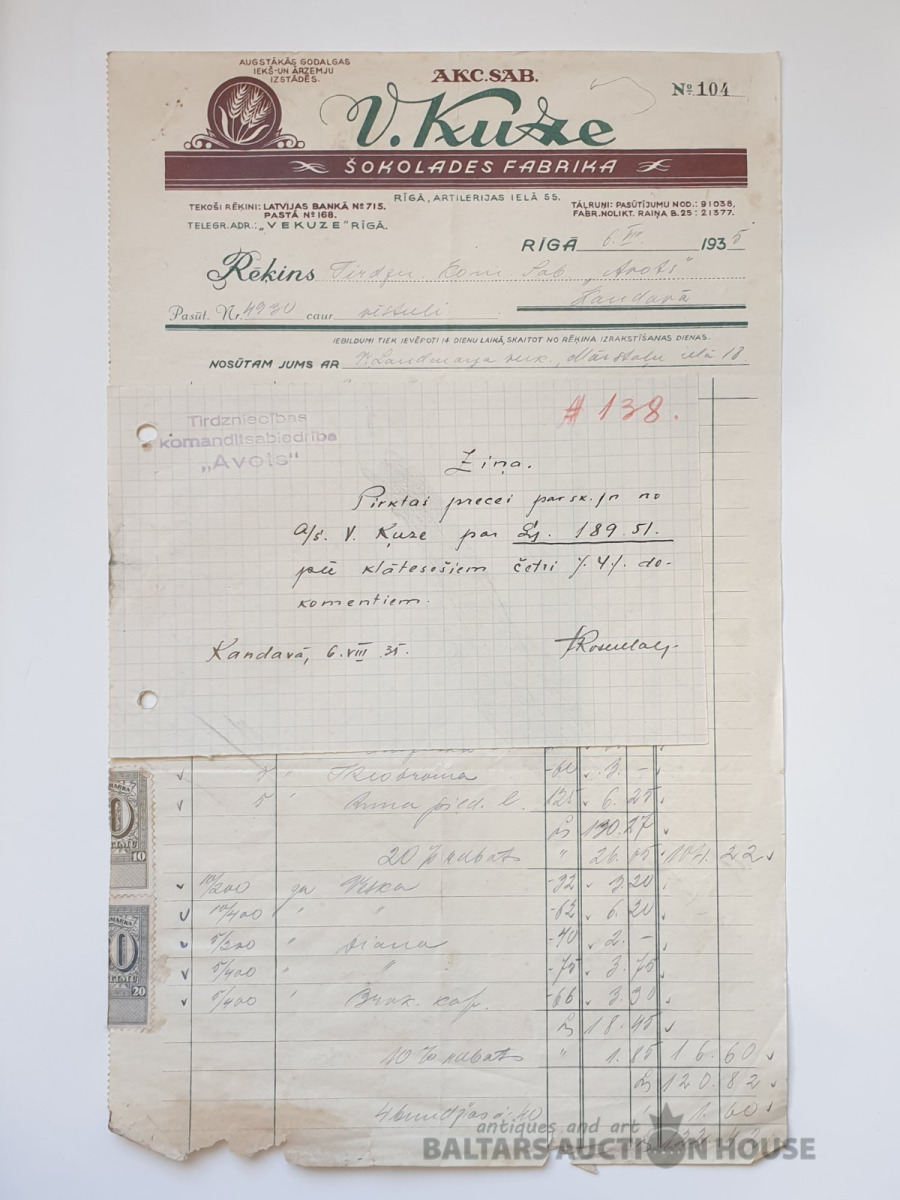 AUGSTĀKĀS GODALGAS
IEKŠ-UN ĀRZEMJU
IZSTĀDĒS.
AKC. SAB.
V. Ķuze
№ 104
ŠOKOLADES FABRIKA
RĪGĀ, ARTILERIJAS IELĀ 55.
TEKOŠI RĒĶINI: LATVIJAS BANKĀ № 715.
PASTĀ № 168.
TELEGR. ADR.: „VEKUZE" RĪGĀ.
TĀLRUŅI: PASŪTĪJUMU NOD.: 91038.
FABR. NOLIKT. RAIŅA B. 25: 21377.
RĪGĀ 6. 1935
Rēķins Tirdzn. Kom. Sab. „Avots"
Kandavā
Pasūt. Nr. 4930 caur
IEBILDUMI TIEK IEVĒROTI 14 DIENU LAIKĀ, SKAITOT NO RĒĶINA IZRAKSTĪŠANAS DIENAS.
NOSŪTAM JUMS AR Mārstaļu ielā 18.
Tirdzniecības
komandītsabiedrība
„Avots"
# 138.
Ziņa.
Pirktas preces no
a/s. V. Ķuze par Ls. 189.51.
pēc klātesošiem četri /.4/. do-
komentiem.
Kandavā, 6. VIII 35.
-60 3. -
5 " Anna pied. 125 6.25
Ls 130.27
20% rabats " 26.05 104.22
10/200 -32 3.20
10/400 " " -62 6.20
5/200 " Diana -40 2. -
5/400 " " -75 3.75
5/400 " Brok. -66 3.30
Ls 18.45
10% rabats " 1.85 16.60
Ls 120.82
1.60
10
20
antiques and art
BALTARS AUCTION HOUSE